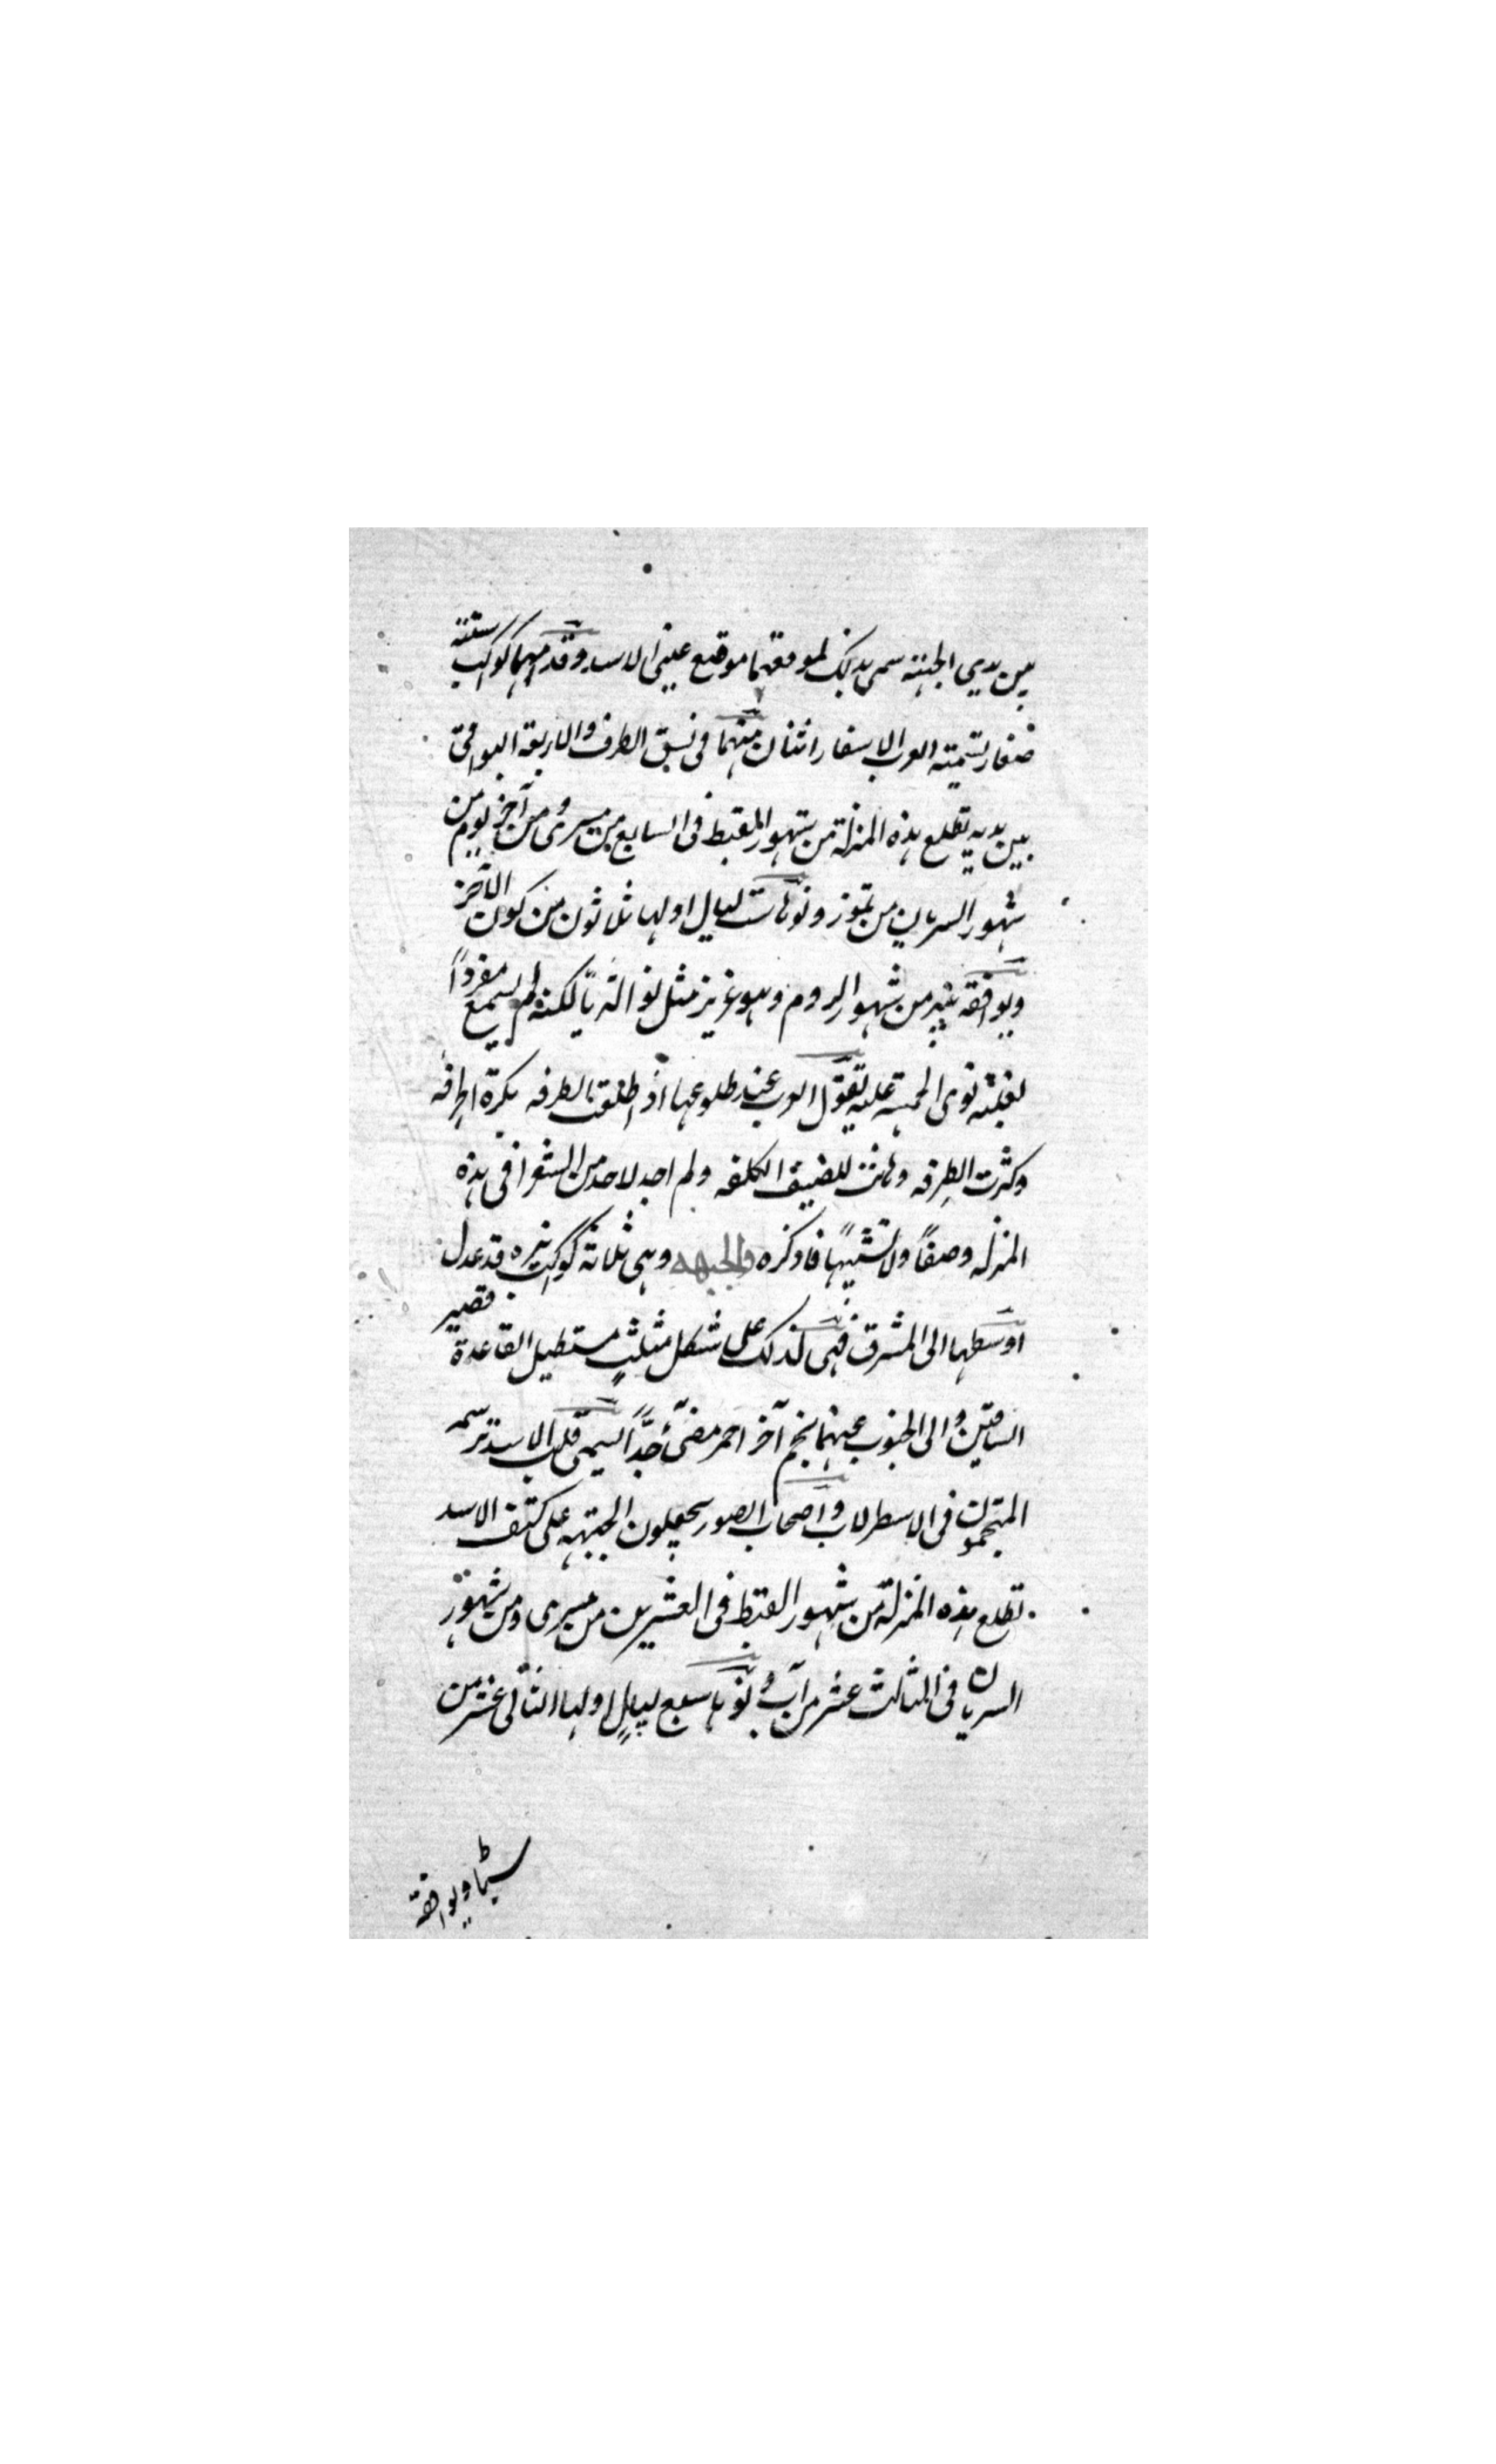 بين يدي الجبهة سمى بذلك لموقعهما موقع عيني الاسد وقدامهما كواكب ستة
صغار تسميه العرب الاسفار اثنان منهما فى نسق الطرف والاربعة البواقى
بين يديه تطلع هذه المنزلة من شهور القبط فى السابع من مسرى ومن آخر يوم من
شهور السريان من تموز ونوءها ست ليال اولها ثلاثون من كانون الآخر
ويوافقه ينير من شهور الروم وهو غزير مثل نوء الثريا لكنه لم يسمع مفرداً
لغلبة نوى الجبهة عليه تقول العرب عند طلوعها اذا طلعت الطرفه بكرة الخرافه
وكثرت الطرفه وهانت للضيف الكلفه ولم اجد لاحد من الشعرا فى هذه
المنزله وصفاً ولا تشبيهاً فاذكره والجبهه وهى ثلاثة كواكب نيره قد عدل
اوسطها الى المشرق فهى لذلك على شكل مثلث مستطيل القاعدة قصير
الساقين والى الجنوب عنهما نجم آخر احمر مضئ جدّاً يسمى قلب الاسد ترسمه
المنجمون فى الاسطرلاب واصحاب الصور يجعلون الجبهة على كتف الاسد
تطلع هذه المنزلة من شهور القبط فى العشرين من مسرى ومن شهور
السريان فى الثالث عشر من آب ونوءها سبع ليالٍ اولها الثانى عشر من
ويوافقه